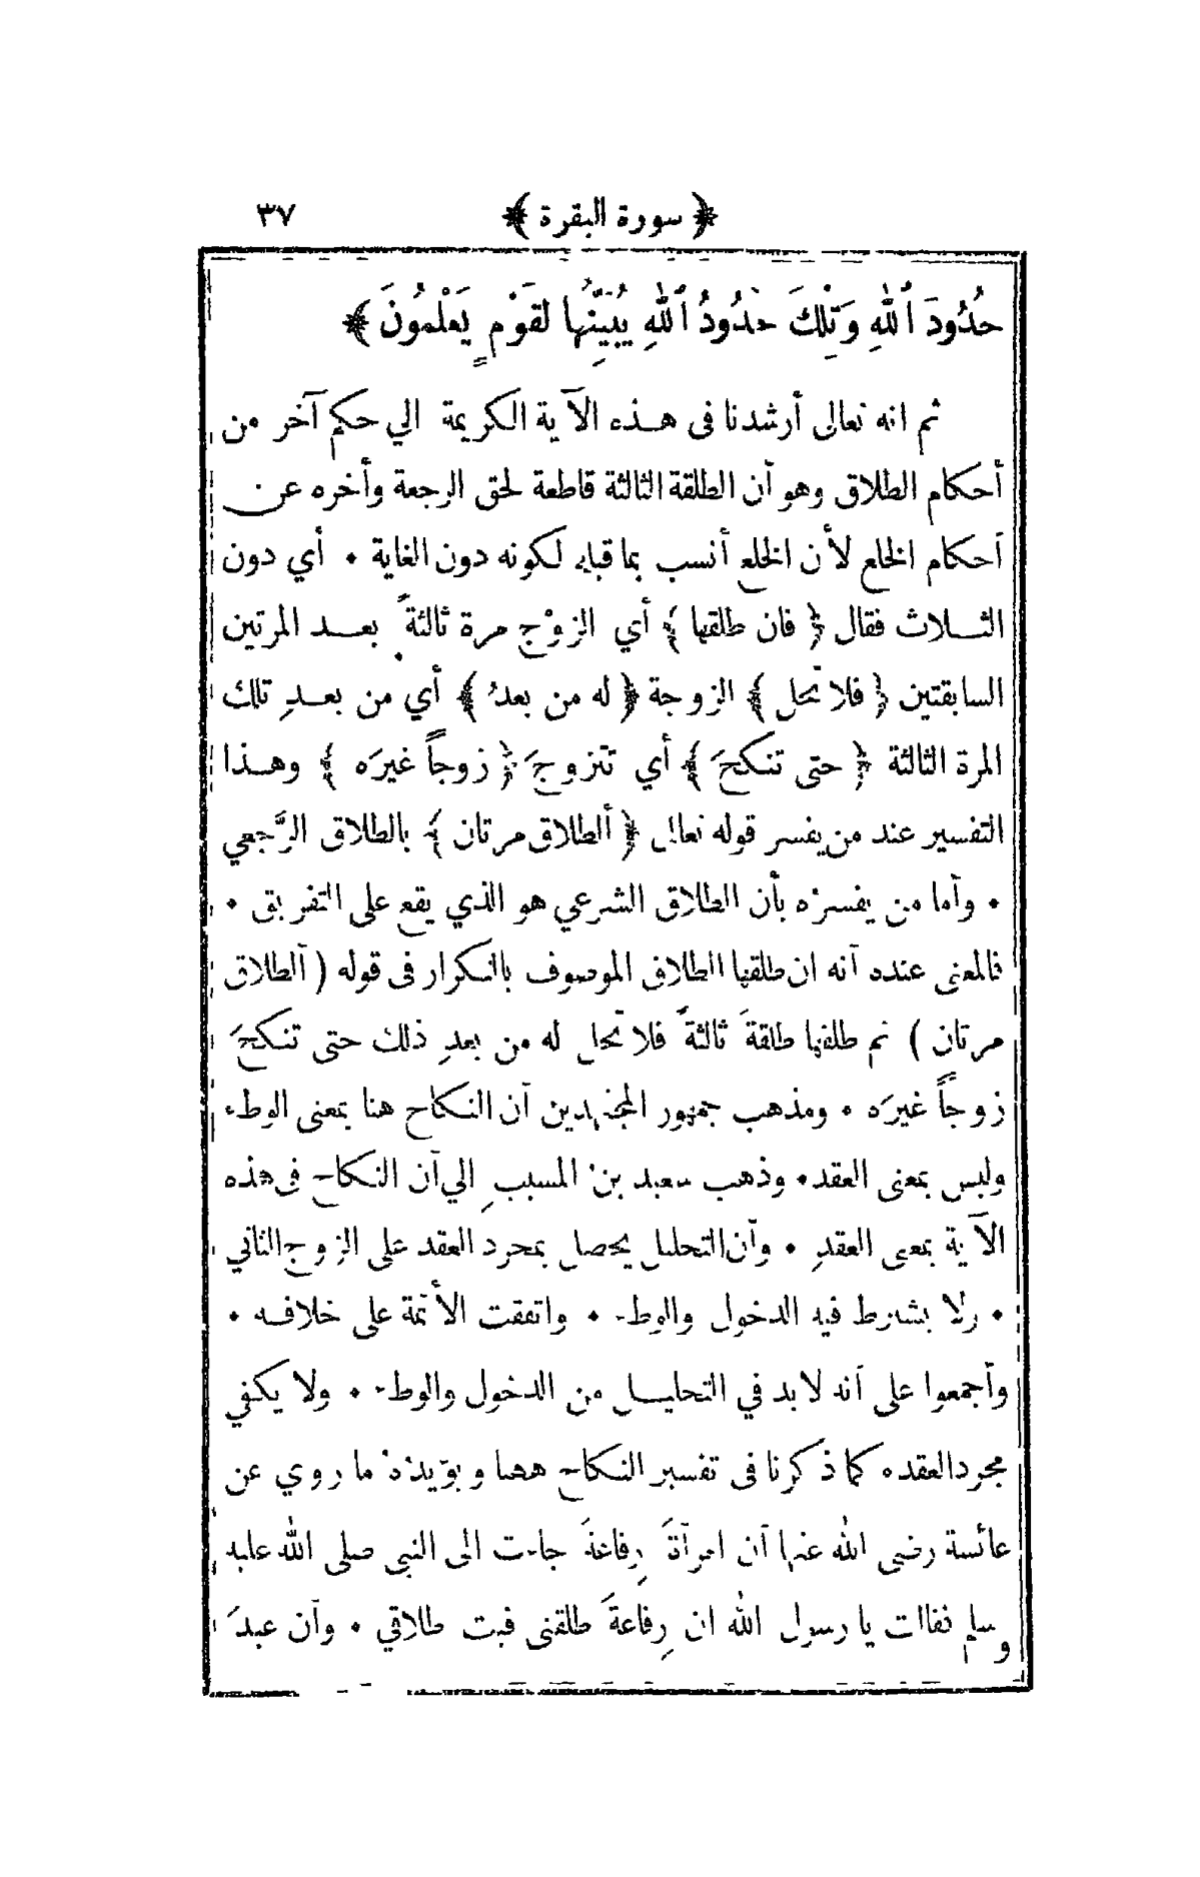 ﴿ سورة البقرة ﴾ ٣٧
حُدُودَ ٱللهِ وَتِلْكَ حُدُودُ ٱللهِ يُبَيِّنُهَا لِقَوْمٍ يَعْلَمُونَ ﴾
ثم انه تعالى أرشدنا فى هـذه الآية الكريمة الي حكم آخر من
أحكام الطلاق وهو أن الطلقة الثالثة قاطعة لحق الرجعة وأخره عن
أحكام الخلع لأن الخلع أنسب بما قبله لكونه دون الغاية • أي دون
الثـلاث فقال ﴿ فان طلقها ﴾ أي الزوْج مرة ثالثةً بعـد المرتين
السابقتين ﴿ فلا تحل ﴾ الزوجة ﴿ له من بعدُ ﴾ أي من بعـدِ تلك
المرة الثالثة ﴿ حتى تنكحَ ﴾ أي تتزوجَ ﴿ زوجاً غيرَه ﴾ وهـذا
التفسير عند من يفسر قوله تعالى ﴿ ألطلاق مرتان ﴾ بالطلاق الرَّجعي
• وأما من يفسرُه بأن الطلاق الشرعي هو الذي يقع على التفريق •
فالمعنى عنده أنه ان طلقها الطلاق الموصوف بالتكرار فى قوله ( ألطلاق
مرتان ) ثم طلقها طلقةَ ثالثةً فلا تحل له من بعدِ ذلك حتى تنكحَ
زوجاً غيرَه • ومذهب جمهور المجتهدين أن النكاح هنا بمعنى الوطء
وليس بمعنى العقد • وذهب سعيد بنُ المسيبِ الي أن النكاح فى هذه
الآية بمعنى العقدِ • وأن التحليل يحصل بمجرد العقد على الزوج الثاني
• ولا يشترط فيه الدخول والوطء • واتفقت الأئمة على خلافـه •
وأجمعوا على أنه لابد في التحليـل من الدخول والوطء • ولا يكفي
مجرد العقد • كما ذكرنا فى تفسير النكاح ههنا ويؤيدُهُ ما روي عن
عائشة رضى الله عنها أن امرأةَ رِفاعةَ جاءت الى النبى صلى الله عليه
وسلم فقالت يا رسول الله ان رِفاعةَ طلقنى فبت طلاقي • وأن عبدَ